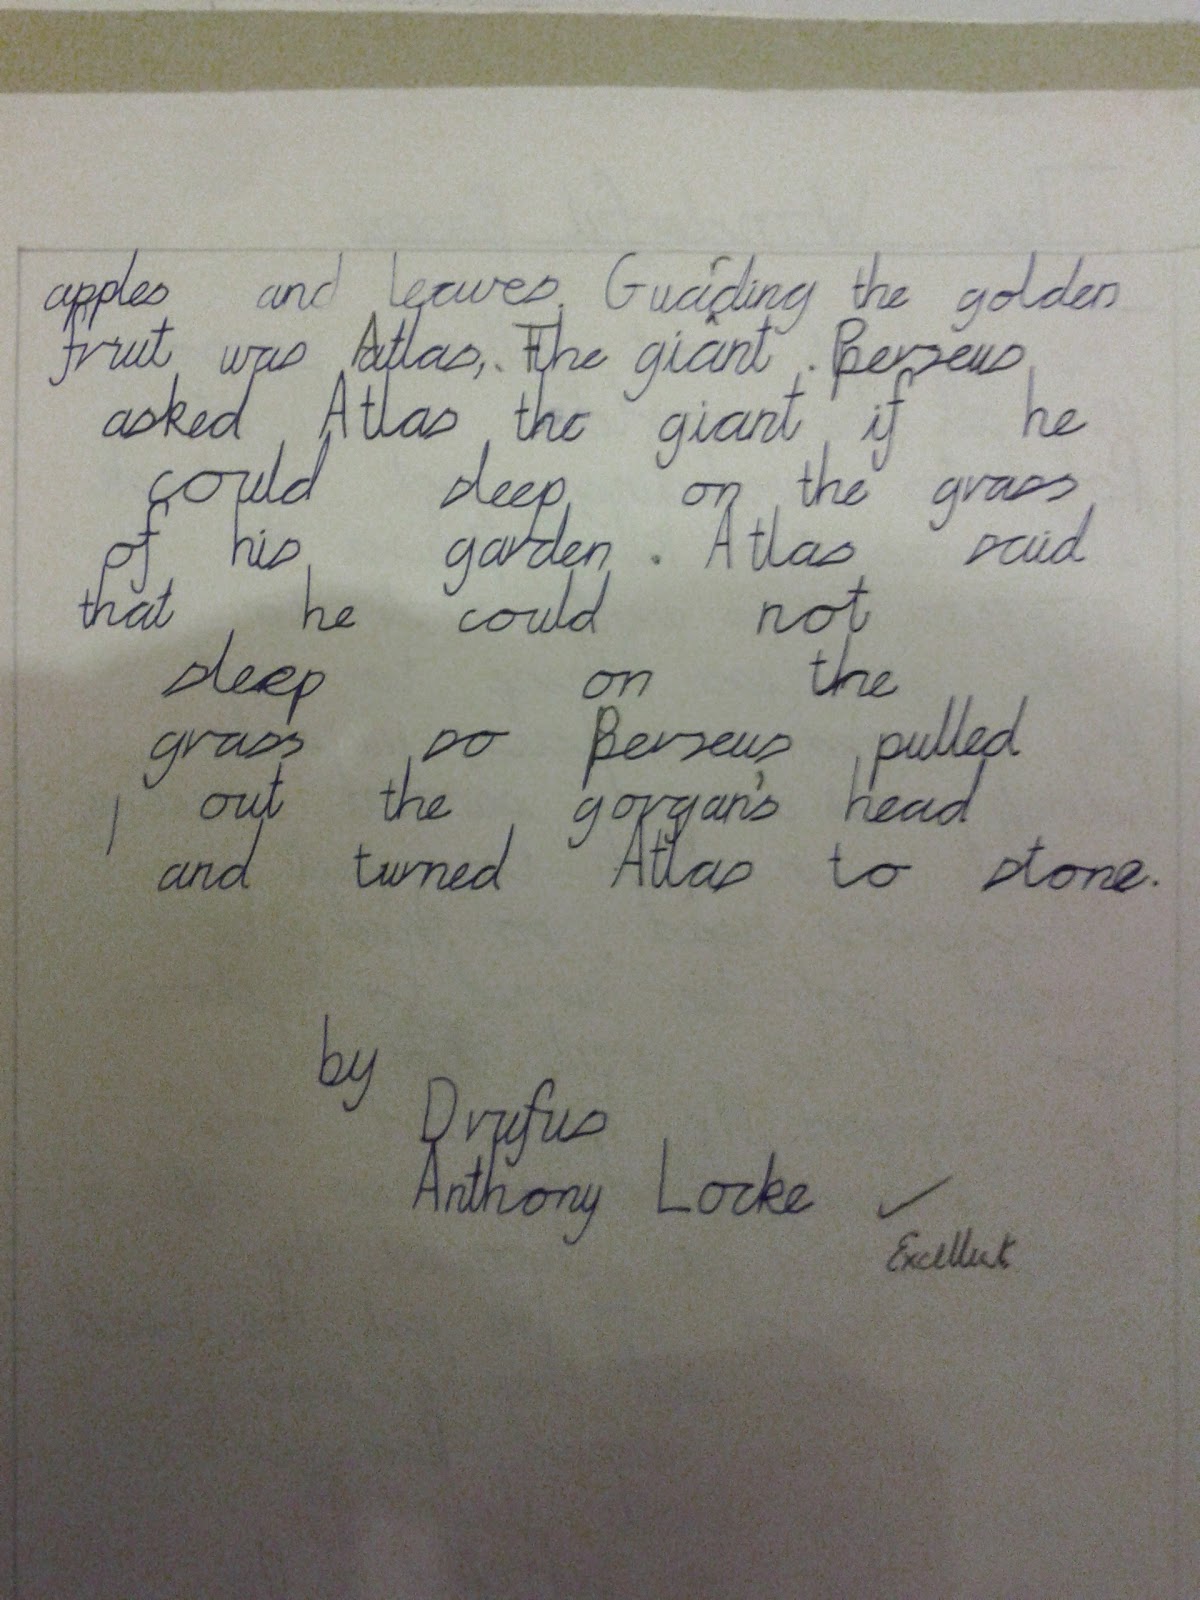 apples and leaves. Guarding the golden
fruit was Atlas, The giant. Perseus
asked Atlas the giant if he
could sleep on the grass
of his garden. Atlas said
that he could not
sleep on the
grass so Perseus pulled
out the gorgan's head
and turned Atlas to stone.
by
Drufus
Anthony Locke
Excellent